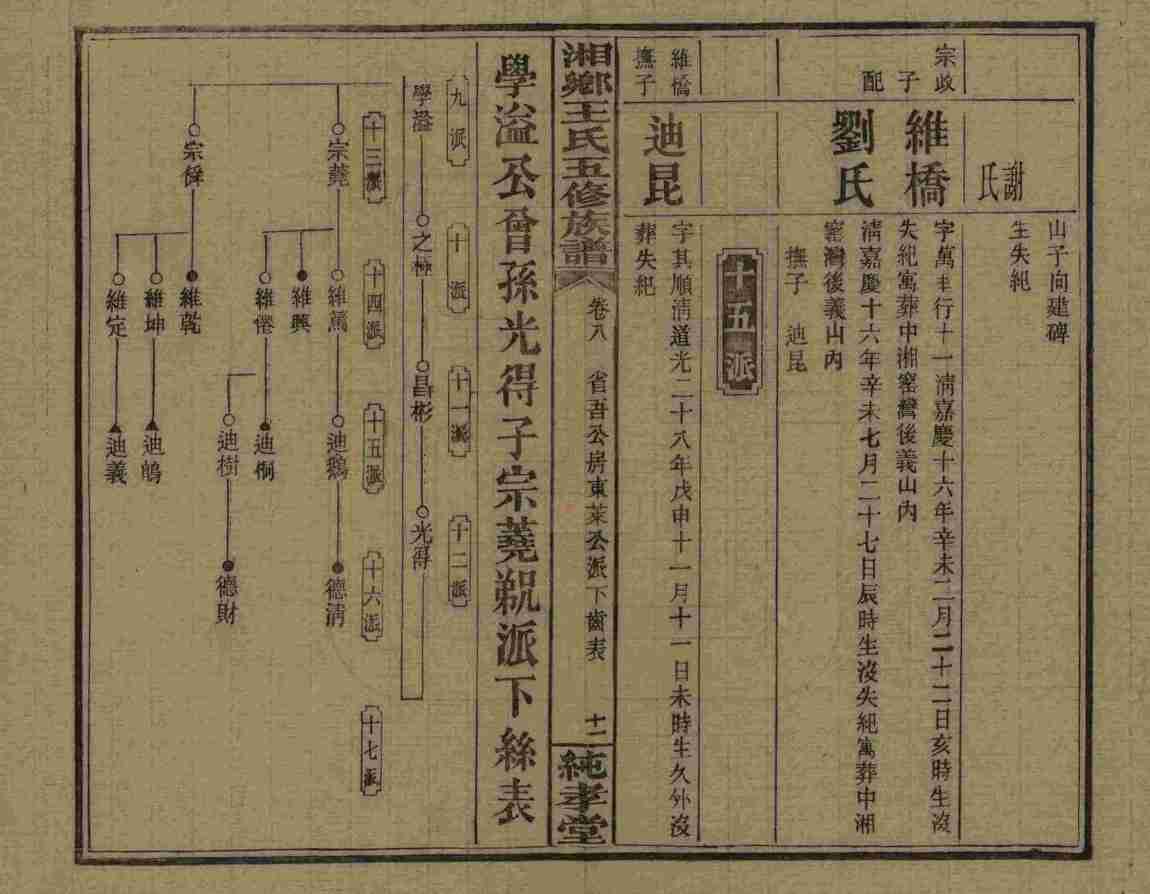 謝氏
山子向建碑
生失紀
宗政子
維橋
字萬丰行十一淸嘉慶十六年辛未二月二十二日亥時生沒
失紀寓葬中湘窰灣後義山內
配
劉氏
淸嘉慶十六年辛未七月二十七日辰時生沒失紀寓葬中湘
窰灣後義山內
撫子 迪昆
十五派
維橋撫子
迪昆
字其順淸道光二十八年戊申十一月十一日未時生久外沒
葬失紀
湘鄕王氏五修族譜
卷八 省吾公房東萊公派下齒表 十二
純孝堂
學溢公曾孫光得子宗蕘派下絲表
九派 十派 十一派 十二派
學溢 之極 昌彬 光得
十三派 十四派 十五派 十六派 十七派
宗蕘 維篤 迪鵝 德淸
維興
維倦 迪侗
迪樹 德財
宗 維乾
維坤 迪鵠
維定 迪義